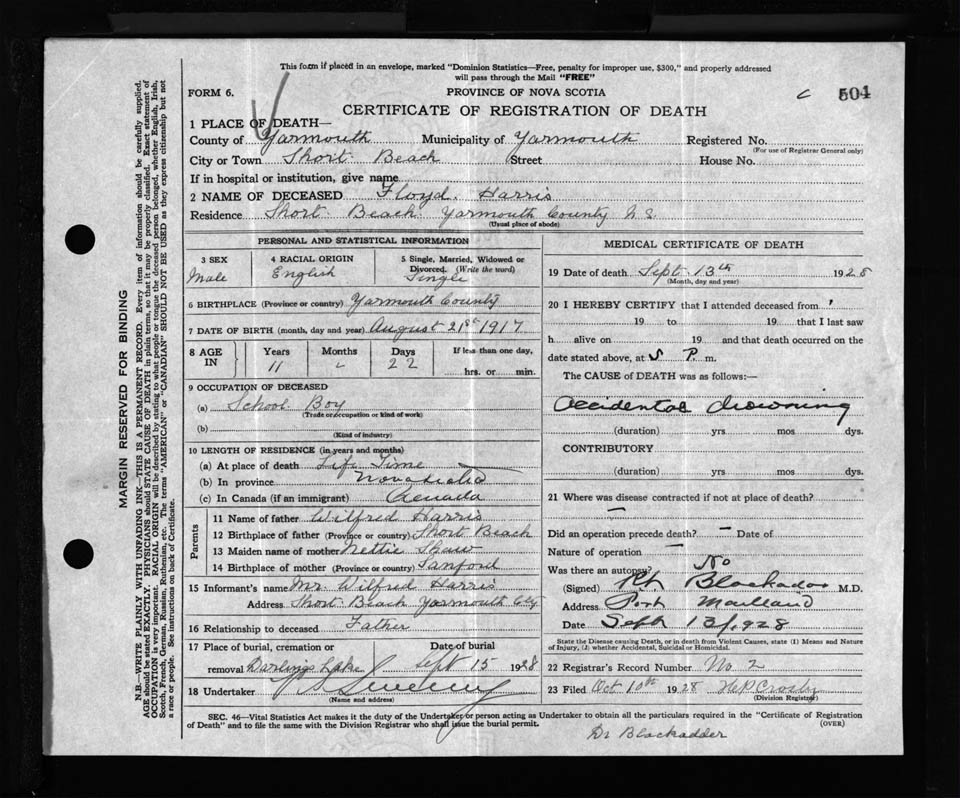 This form if placed in an envelope, marked "Dominion Statistics—Free, penalty for improper use, $300," and properly addressed
will pass through the Mail "FREE"
FORM 6.
PROVINCE OF NOVA SCOTIA
c 504
CERTIFICATE OF REGISTRATION OF DEATH
1 PLACE OF DEATH—
County of Yarmouth Municipality of Yarmouth Registered No.
(For use of Registrar General only)
City or Town Short Beach Street House No.
If in hospital or institution, give name
2 NAME OF DECEASED Floyd Harris
Residence Short Beach Yarmouth County N.S.
(Usual place of abode)
PERSONAL AND STATISTICAL INFORMATION
3 SEX 4 RACIAL ORIGIN 5 Single, Married, Widowed or
Divorced. (Write the word)
Male English Single
6 BIRTHPLACE (Province or country) Yarmouth County
7 DATE OF BIRTH (month, day and year) August 21st 1917
8 AGE IN Years Months Days If less than one day,
11 - 22 hrs. or min.
9 OCCUPATION OF DECEASED
(a) School Boy
(Trade or occupation or kind of work)
(b)
(Kind of industry)
10 LENGTH OF RESIDENCE (in years and months)
(a) At place of death Life Time
(b) In province Nova Scotia
(c) In Canada (if an immigrant) Canada
Parents
11 Name of father Wilfred Harris
12 Birthplace of father (Province or country) Short Beach
13 Maiden name of mother Nettie Shaw
14 Birthplace of mother (Province or country) Sanford
15 Informant's name Mr. Wilfred Harris
Address Short Beach Yarmouth Cty
16 Relationship to deceased Father
17 Place of burial, cremation or Date of burial
removal Darlings Lake Sept 15 1928
18 Undertaker Sweeney
(Name and address)
MEDICAL CERTIFICATE OF DEATH
19 Date of death Sept 13th 1928
(Month, day and year)
20 I HEREBY CERTIFY that I attended deceased from
19 to 19 that I last saw
h alive on 19 and that death occurred on the
date stated above, at 5 P. m.
The CAUSE OF DEATH was as follows:—
Accidental drowning
(duration) yrs mos dys.
CONTRIBUTORY
(duration) yrs mos dys.
21 Where was disease contracted if not at place of death?
—
Did an operation precede death? — Date of
Nature of operation —
Was there an autopsy? No
(Signed) Blackadar M.D.
Address Port Maitland
Date Sept 13/1928
State the Disease causing Death, or in death from Violent Causes, state (1) Means and Nature
of Injury, (2) whether Accidental, Suicidal or Homicidal.
22 Registrar's Record Number No 2
23 Filed Oct 10th 1928 H P Crosby
(Division Registrar)
SEC. 46—Vital Statistics Act makes it the duty of the Undertaker or person acting as Undertaker to obtain all the particulars required in the "Certificate of Registration
of Death" and to file the same with the Division Registrar who shall issue the burial permit. (OVER)
Dr Blackadder
MARGIN RESERVED FOR BINDING
N.B.—WRITE PLAINLY WITH UNFADING INK—THIS IS A PERMANENT RECORD. Every item of information should be carefully supplied.
AGE should be stated EXACTLY. PHYSICIANS should STATE CAUSE OF DEATH in plain terms, so that it may be properly classified. Exact statement of
OCCUPATION is very important. RACIAL ORIGIN will be described by stating to what people or tongue the deceased person belonged, whether English, Irish,
Scotch, French, German, Russian, Ruthenian, etc. The terms "AMERICAN" or "CANADIAN" SHOULD NOT BE USED as they express citizenship but not
a race or people. See instructions on back of Certificate.